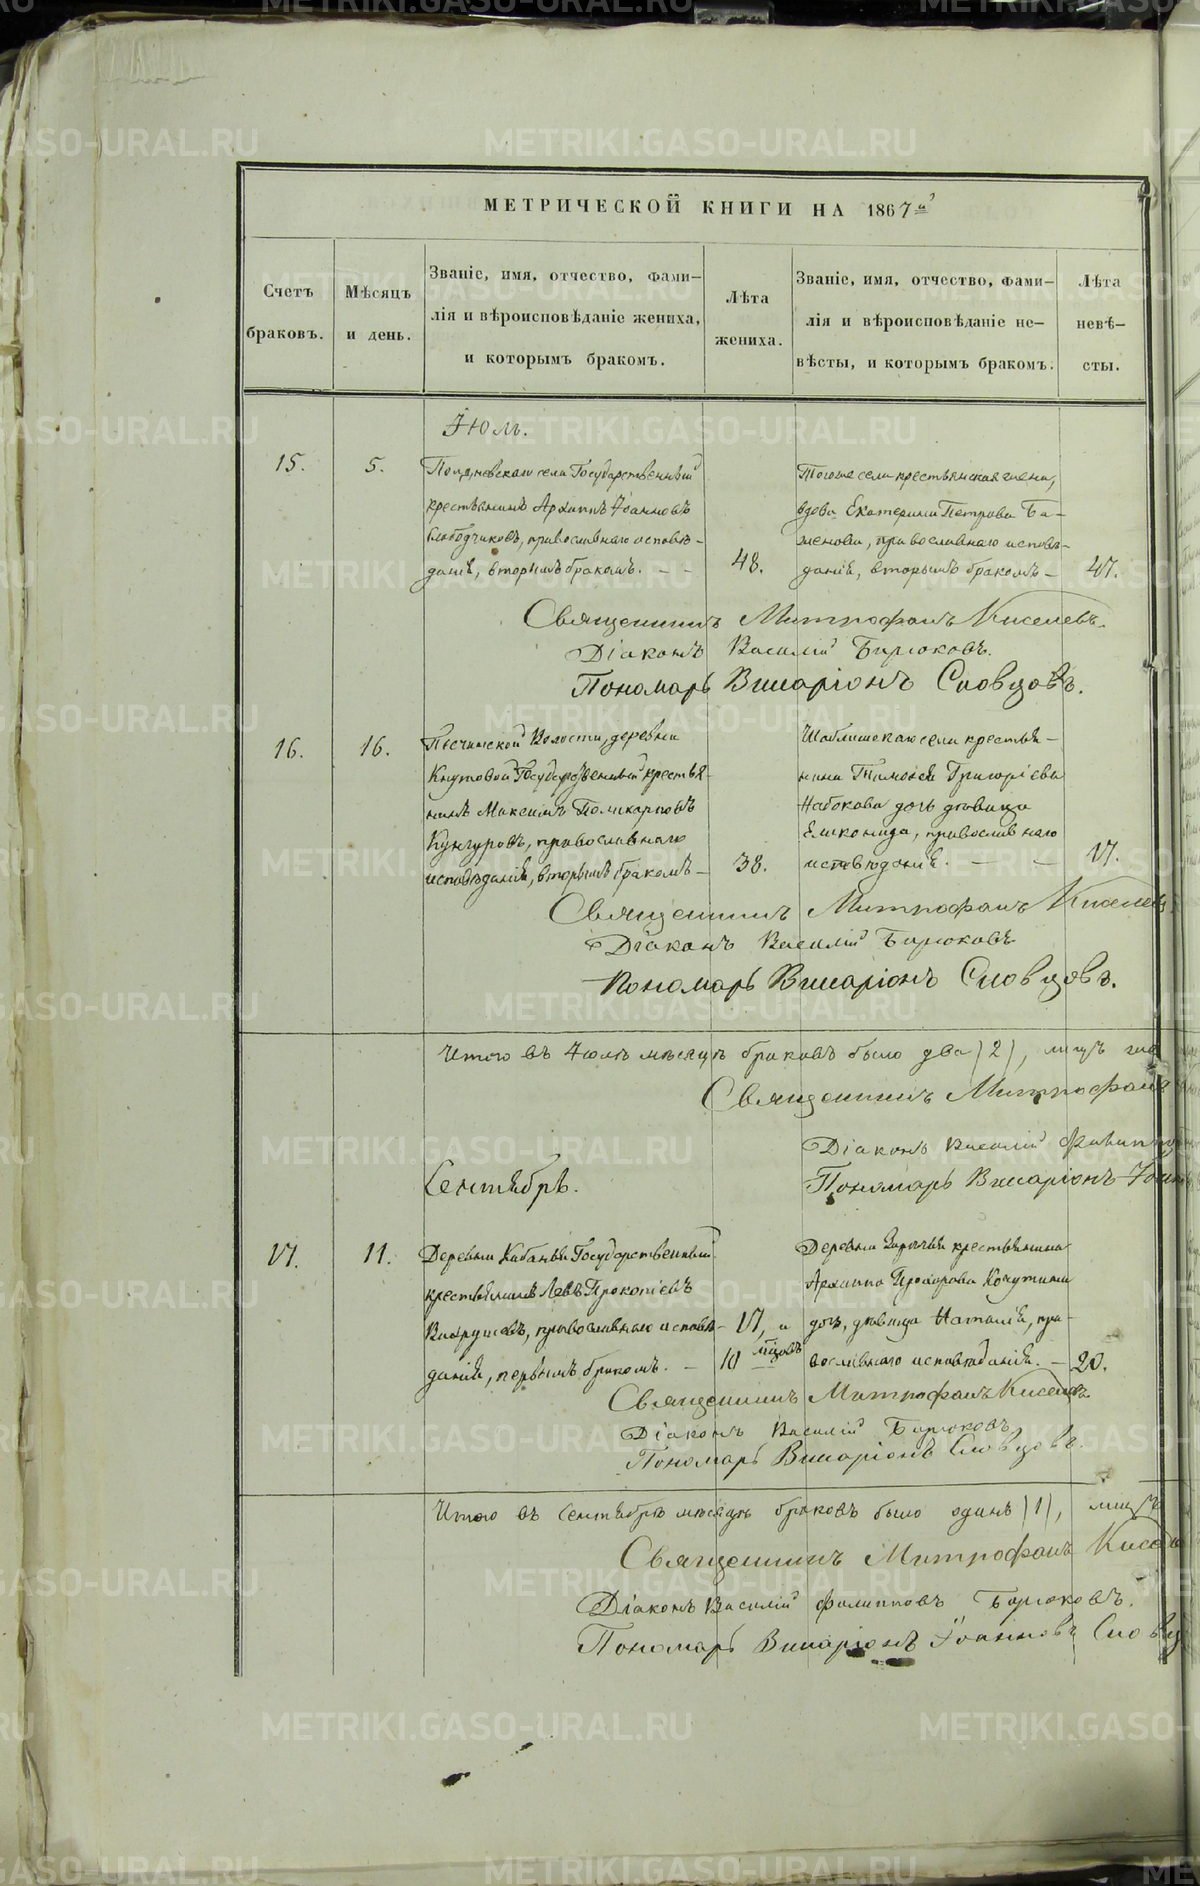 МЕТРИЧЕСКОЙ КНИГИ НА 1867й
Счетъ браковъ.
Мѣсяцъ и день.
Званіе, имя, отчество, фами-
лія и вѣроисповѣданіе жениха,
и которымъ бракомъ.
Лѣта жениха.
Званіе, имя, отчество, фами-
лія и вѣроисповѣданіе не-
вѣсты, и которымъ бракомъ.
Лѣта невѣ-
сты.
Іюль.
15.
5.
села Государственный
крестьянинъ Архиппъ Іоанновъ
Слободчиковъ, православнаго исповѣ-
данія, вторымъ бракомъ. - -
48.
Тогоже села крестьянская жена,
вдова Екатерина Петрова Ба-
женова, православнаго исповѣ-
данія, вторымъ бракомъ -
47.
Священникъ Митрофанъ Киселевъ.
Діаконъ Василій Бирюковъ.
Пономарь Висаріонъ Словцовъ.
16.
16.
Песчанской Волости, деревни
Кнутовой Государственный крестья-
нинъ Максимъ Поликарповъ
Кунгуровъ, православнаго
исповѣданія, вторымъ бракомъ -
38.
села крестья-
нина Тимофея Григоріева
Набокова дочь девица
православнаго
исповѣданія. - -
17.
Священникъ Митрофанъ Киселевъ
Діаконъ Василій Бирюковъ
Пономарь Висаріонъ Словцовъ.
Итого въ Іюлѣ мѣсяцѣ браковъ было два (2), лицъ
Священникъ Митрофанъ
Діаконъ Василій Филиппо
Пономарь Висаріонъ Іоанн
Сентябрь.
17.
11.
Деревни Кабаньей Государственный
крестьянинъ Левъ Прокопіевъ
Вахрушевъ, православнаго исповѣ-
данія, первымъ бракомъ. -
17, и
10 мцовъ
Деревни крестьянина
Архиппа Прохорова Кокутина
дочь, девица Наталія, пра-
вославнаго исповѣданія. -
20.
Священникъ Митрофанъ Киселевъ
Діаконъ Василій Бирюковъ
Пономарь Висаріонъ Словцовъ.
Итого въ Сентябрѣ мѣсяцѣ браковъ было одинъ (1), лицъ
Священникъ Митрофанъ Кисел
Діаконъ Василій Филипповъ Бирюковъ.
Пономарь Висаріонъ Іоанновъ Словц